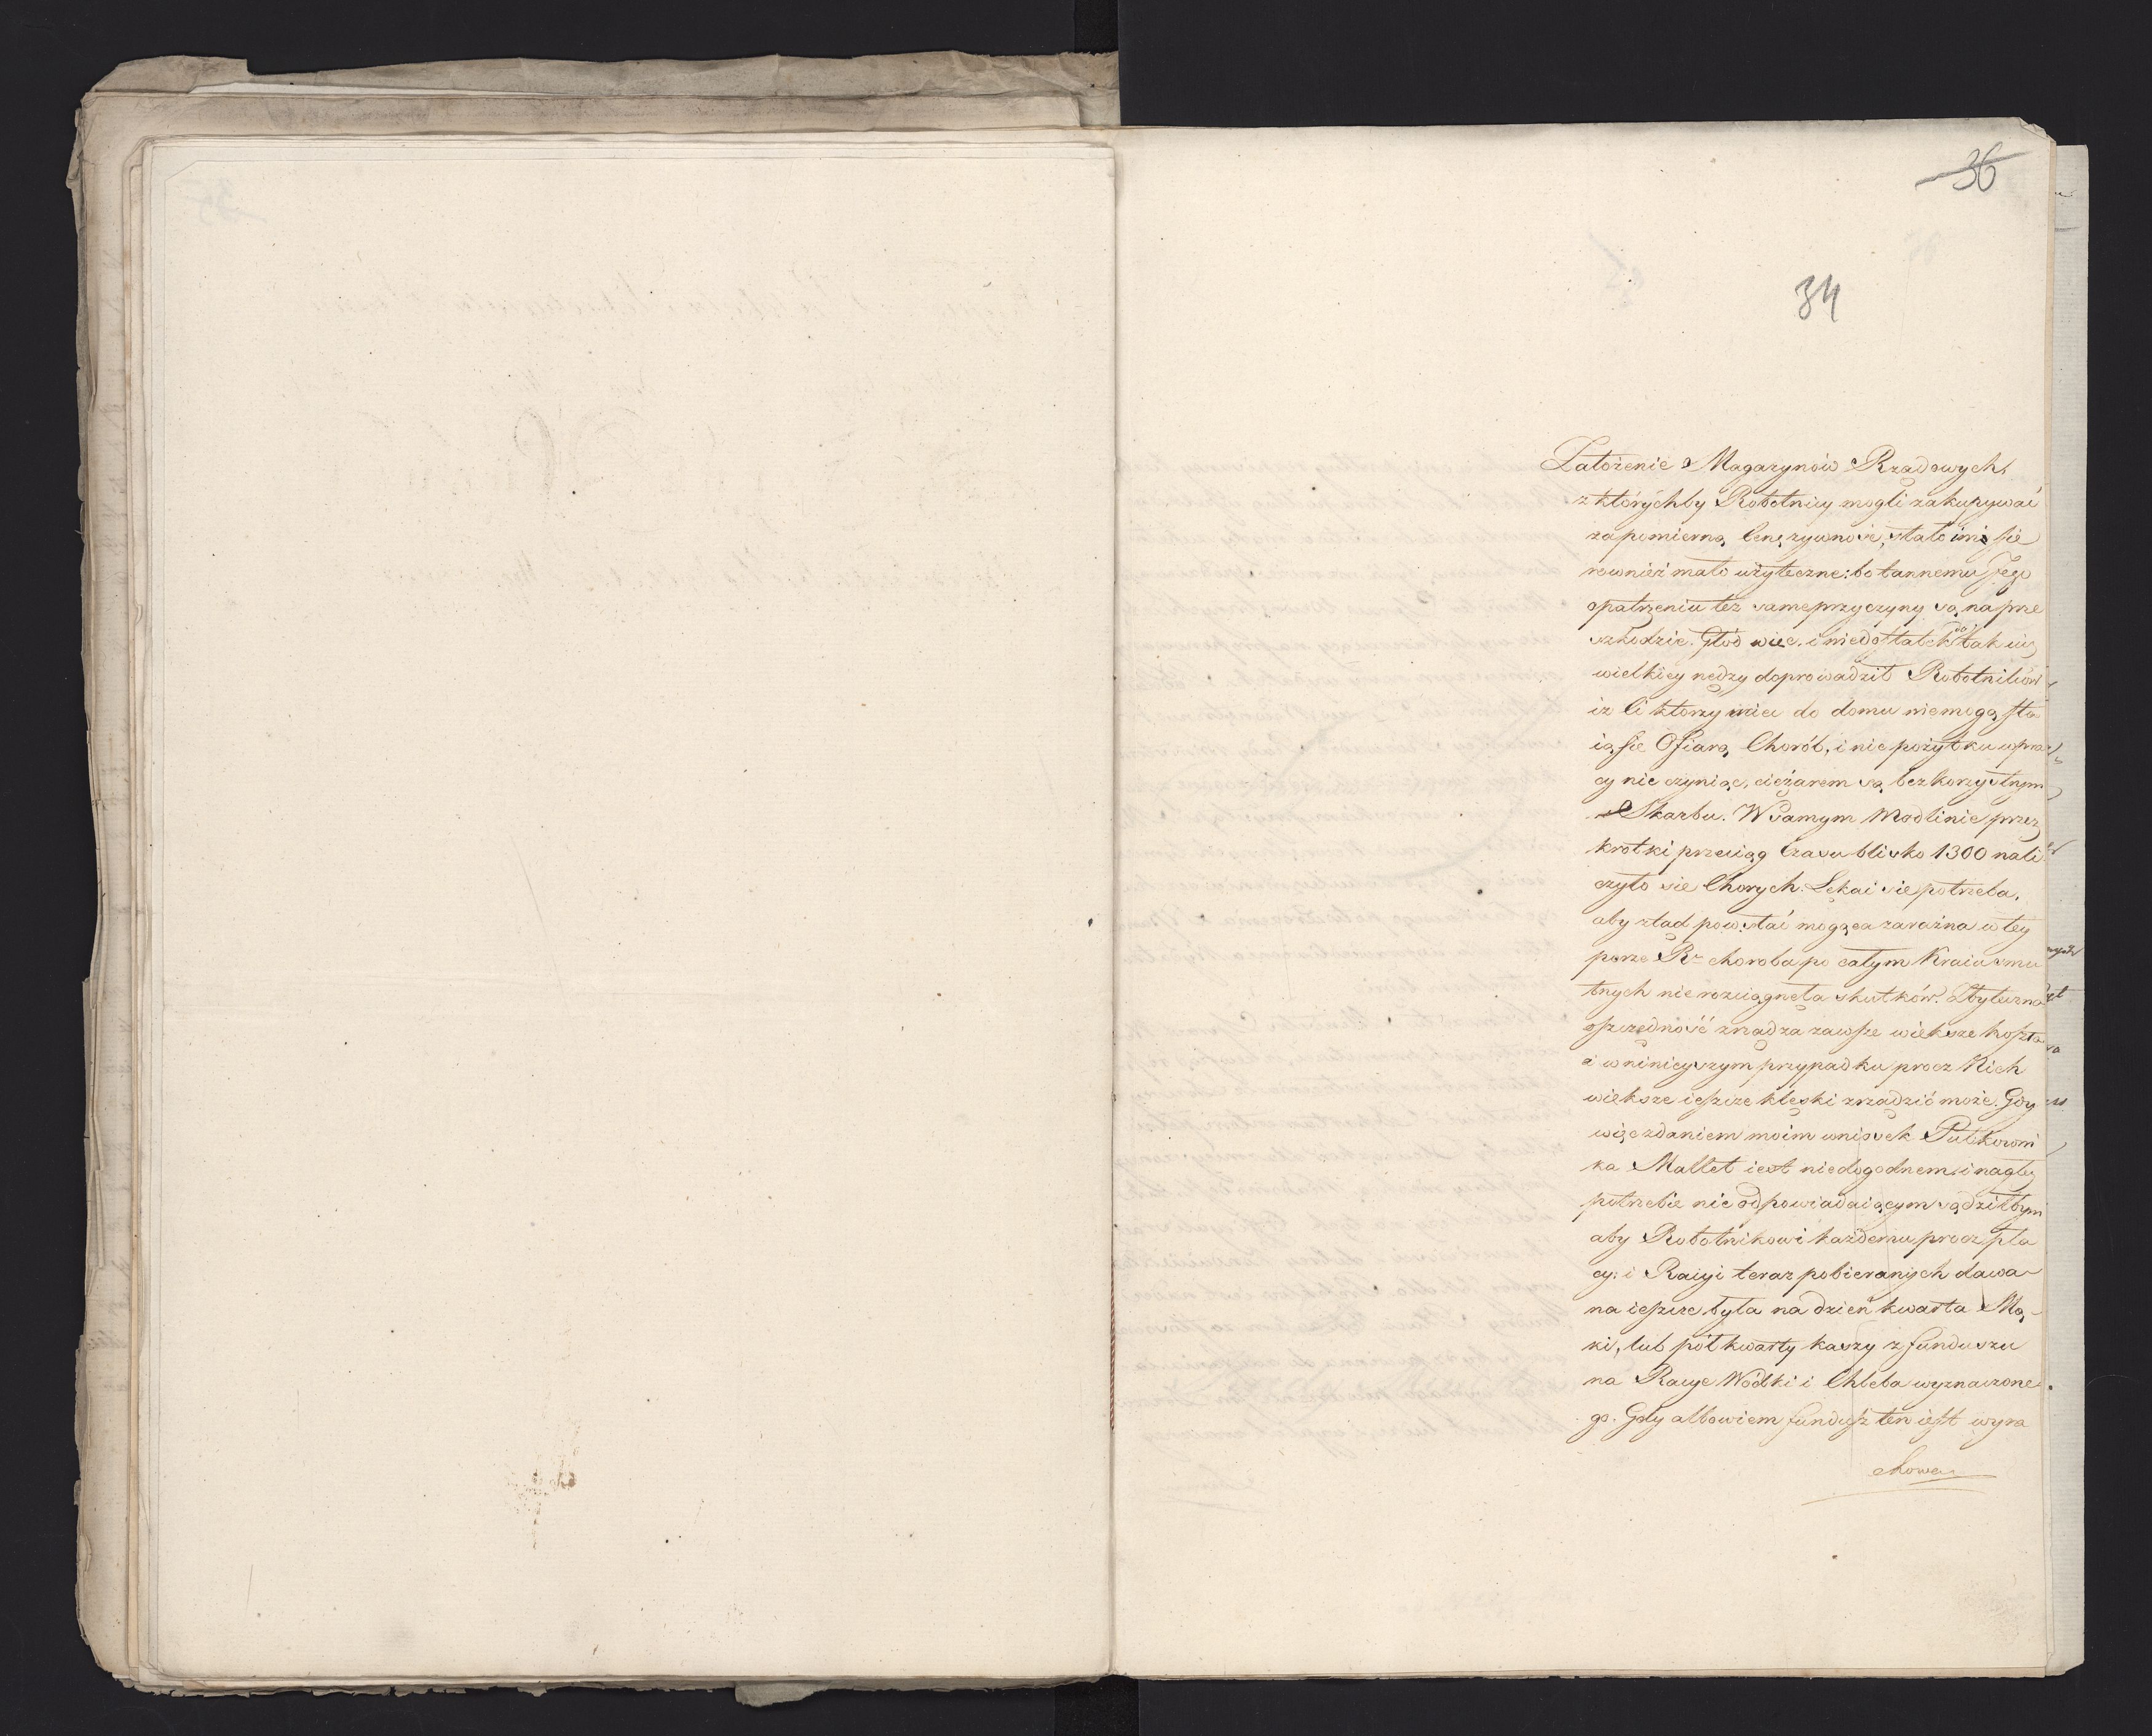 36
34
Założenie Magazynów Rządowych,
z którychby Robotnicy mogli zakupywać
za pomierną Cenę żywność, stało im się
rownież mało użyteczne: bo tannemu Jego
opatrzeniu też same przyczyny są na prze
szkodzie. Głód więc i niedostatek do tak iuż
wielkiey nędzy doprowadził Robotników
iż Ci ktorzy uciec do domu niemogą sta
ią się Ofiarą Chorób, i nic pożytku w pra
cy nie czyniąc, ciężarem są bezkorzystnym
Skarbu. W samym Modlinie przez
krotki przeciąg Czasu blisko 1300 nali
czyło się Chorych. Lękać się potrzeba,
aby ztad powstać mogąca zaraźna w tey
porze Rv choroba po całym Kraiu smu
tnych nie rozciągneła skutków. Zbyteczna
oszczędność zrządza zawsze większe koszta
a w ninieyszym przypadku procz Nich
większe ieszcze klęski zrządzić może. Gdy
więc zdaniem moim wniosek Pułkowni
ka Mallet iest niedogodnem i nagłey
potrzebie nie odpowiadaiącym sądziłbym
aby Robotnikowi każdemu procz pła
cy i Racyi teraz pobieranych dawa-
na ieszcze była na dzień kwarta Mą-
ki, lub pół kwarty kaszy z funduszu
na Racye Wódki i Chleba wyznaczone
go. Gdy albowiem fundusz ten iest wyra
chowa